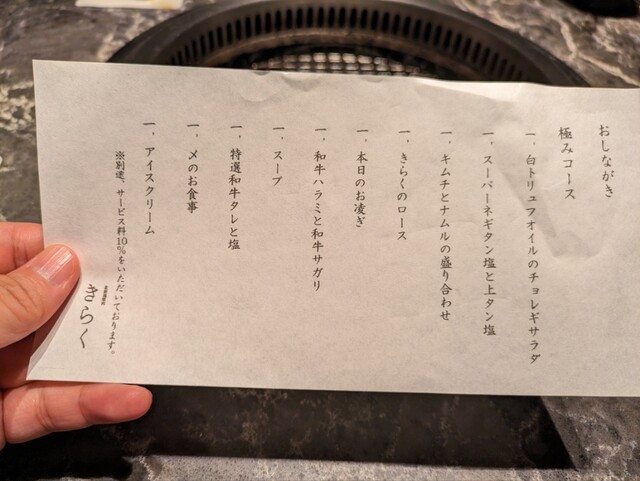 おしながき
極みコース
一、白トリュフオイルのチョレギサラダ
一、スーパーネギタン塩と上タン塩
一、キムチとナムルの盛り合わせ
一、きらくのロース
一、本日のお凌ぎ
一、和牛ハラミと和牛サガリ
一、スープ
一、特選和牛タレと塩
一、〆のお食事
一、アイスクリーム
※別途、サービス料10%をいただいております。
きらく